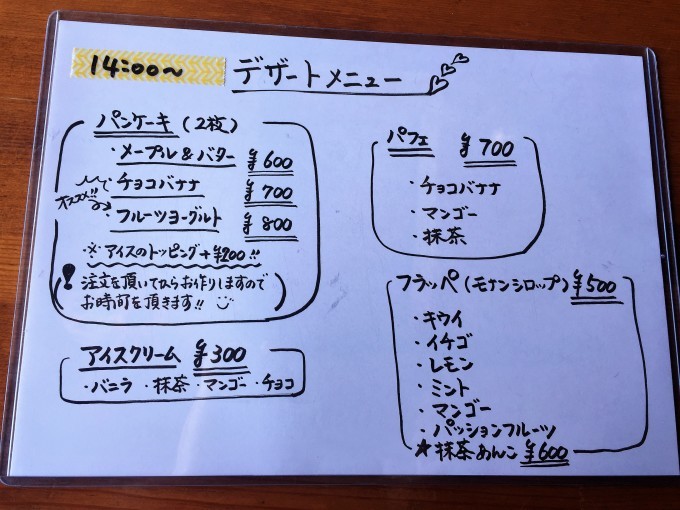 14:00〜 デザートメニュー
パンケーキ (2枚)
・メープル&バター ¥600
・チョコバナナ ¥700
オススメ!!
・フルーツヨーグルト ¥800
※アイスのトッピング+¥200!!
! 注文を頂いてからお作りしますので
お時間を頂きます!!
アイスクリーム ¥300
・バニラ ・抹茶 ・マンゴー ・チョコ
パフェ ¥700
・チョコバナナ
・マンゴー
・抹茶
フラッペ (モナンシロップ) ¥500
・キウイ
・イチゴ
・レモン
・ミント
・マンゴー
・パッションフルーツ
★抹茶あんこ ¥600